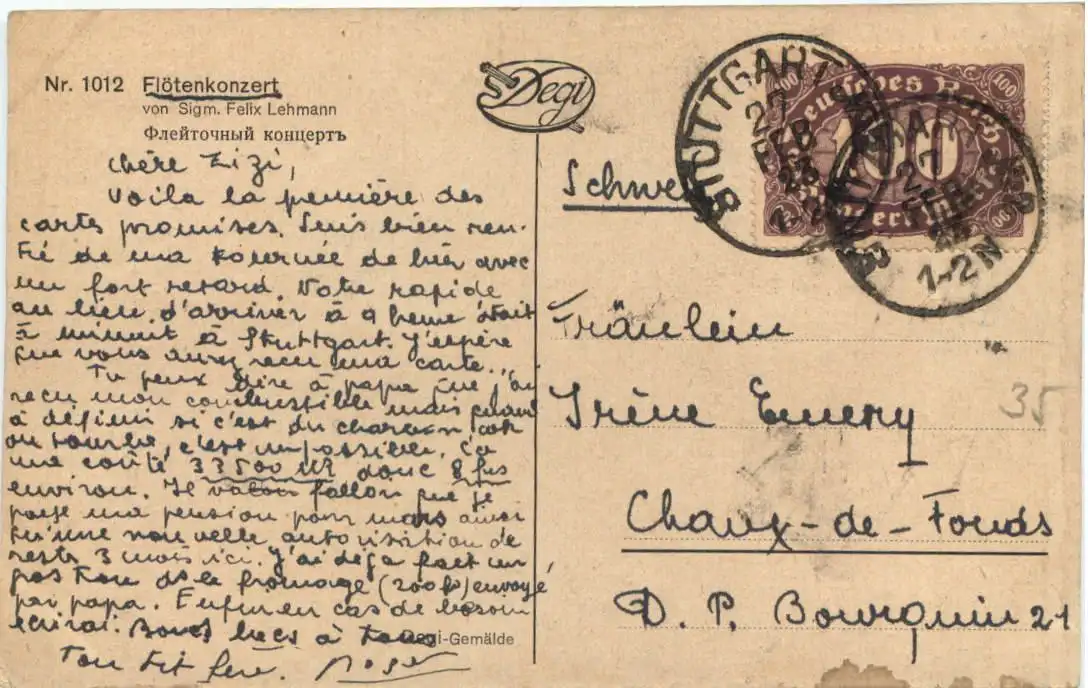 Nr. 1012 Flötenkonzert
von Sigm. Felix Lehmann
Флейточный концертъ
Degi
Chère Zizi,
Voila la première des
cartes promises. Suis bien ren-
tré de ma tournée de hier avec
un fort retard. Notre rapide
au lieu d'arriver à 9 heure était
à minuit à Stuttgart. J'espère
que vous aurez recu ma carte..
Tu peux dire à papa que j'ai
recu mon combustible mais quant
à définir si c'est du charbon
ou tourbe, c'est impossible. Ca
me coûte 33500 M donc 8 frs
environ. Il fallon que je
paye ma pension pour mars ainsi
qu'une nouvelle autorisation de
reste 3 mois ici. J'ai déja fait un
bon de fromage (200 ) envoyé
par papa. Enfin en cas de besoin
écrirai. Bons becs à tous
Ton tit frère. Roger
Degi-Gemälde
STUTTGART
27 FEB 23
Deutsches Reich
100
STUTTGART
27 FEB 23
1-2N
Schwei
Fräulein
Irène Emery
35
Chaux-de-Fonds
D. P. Bourquin 21